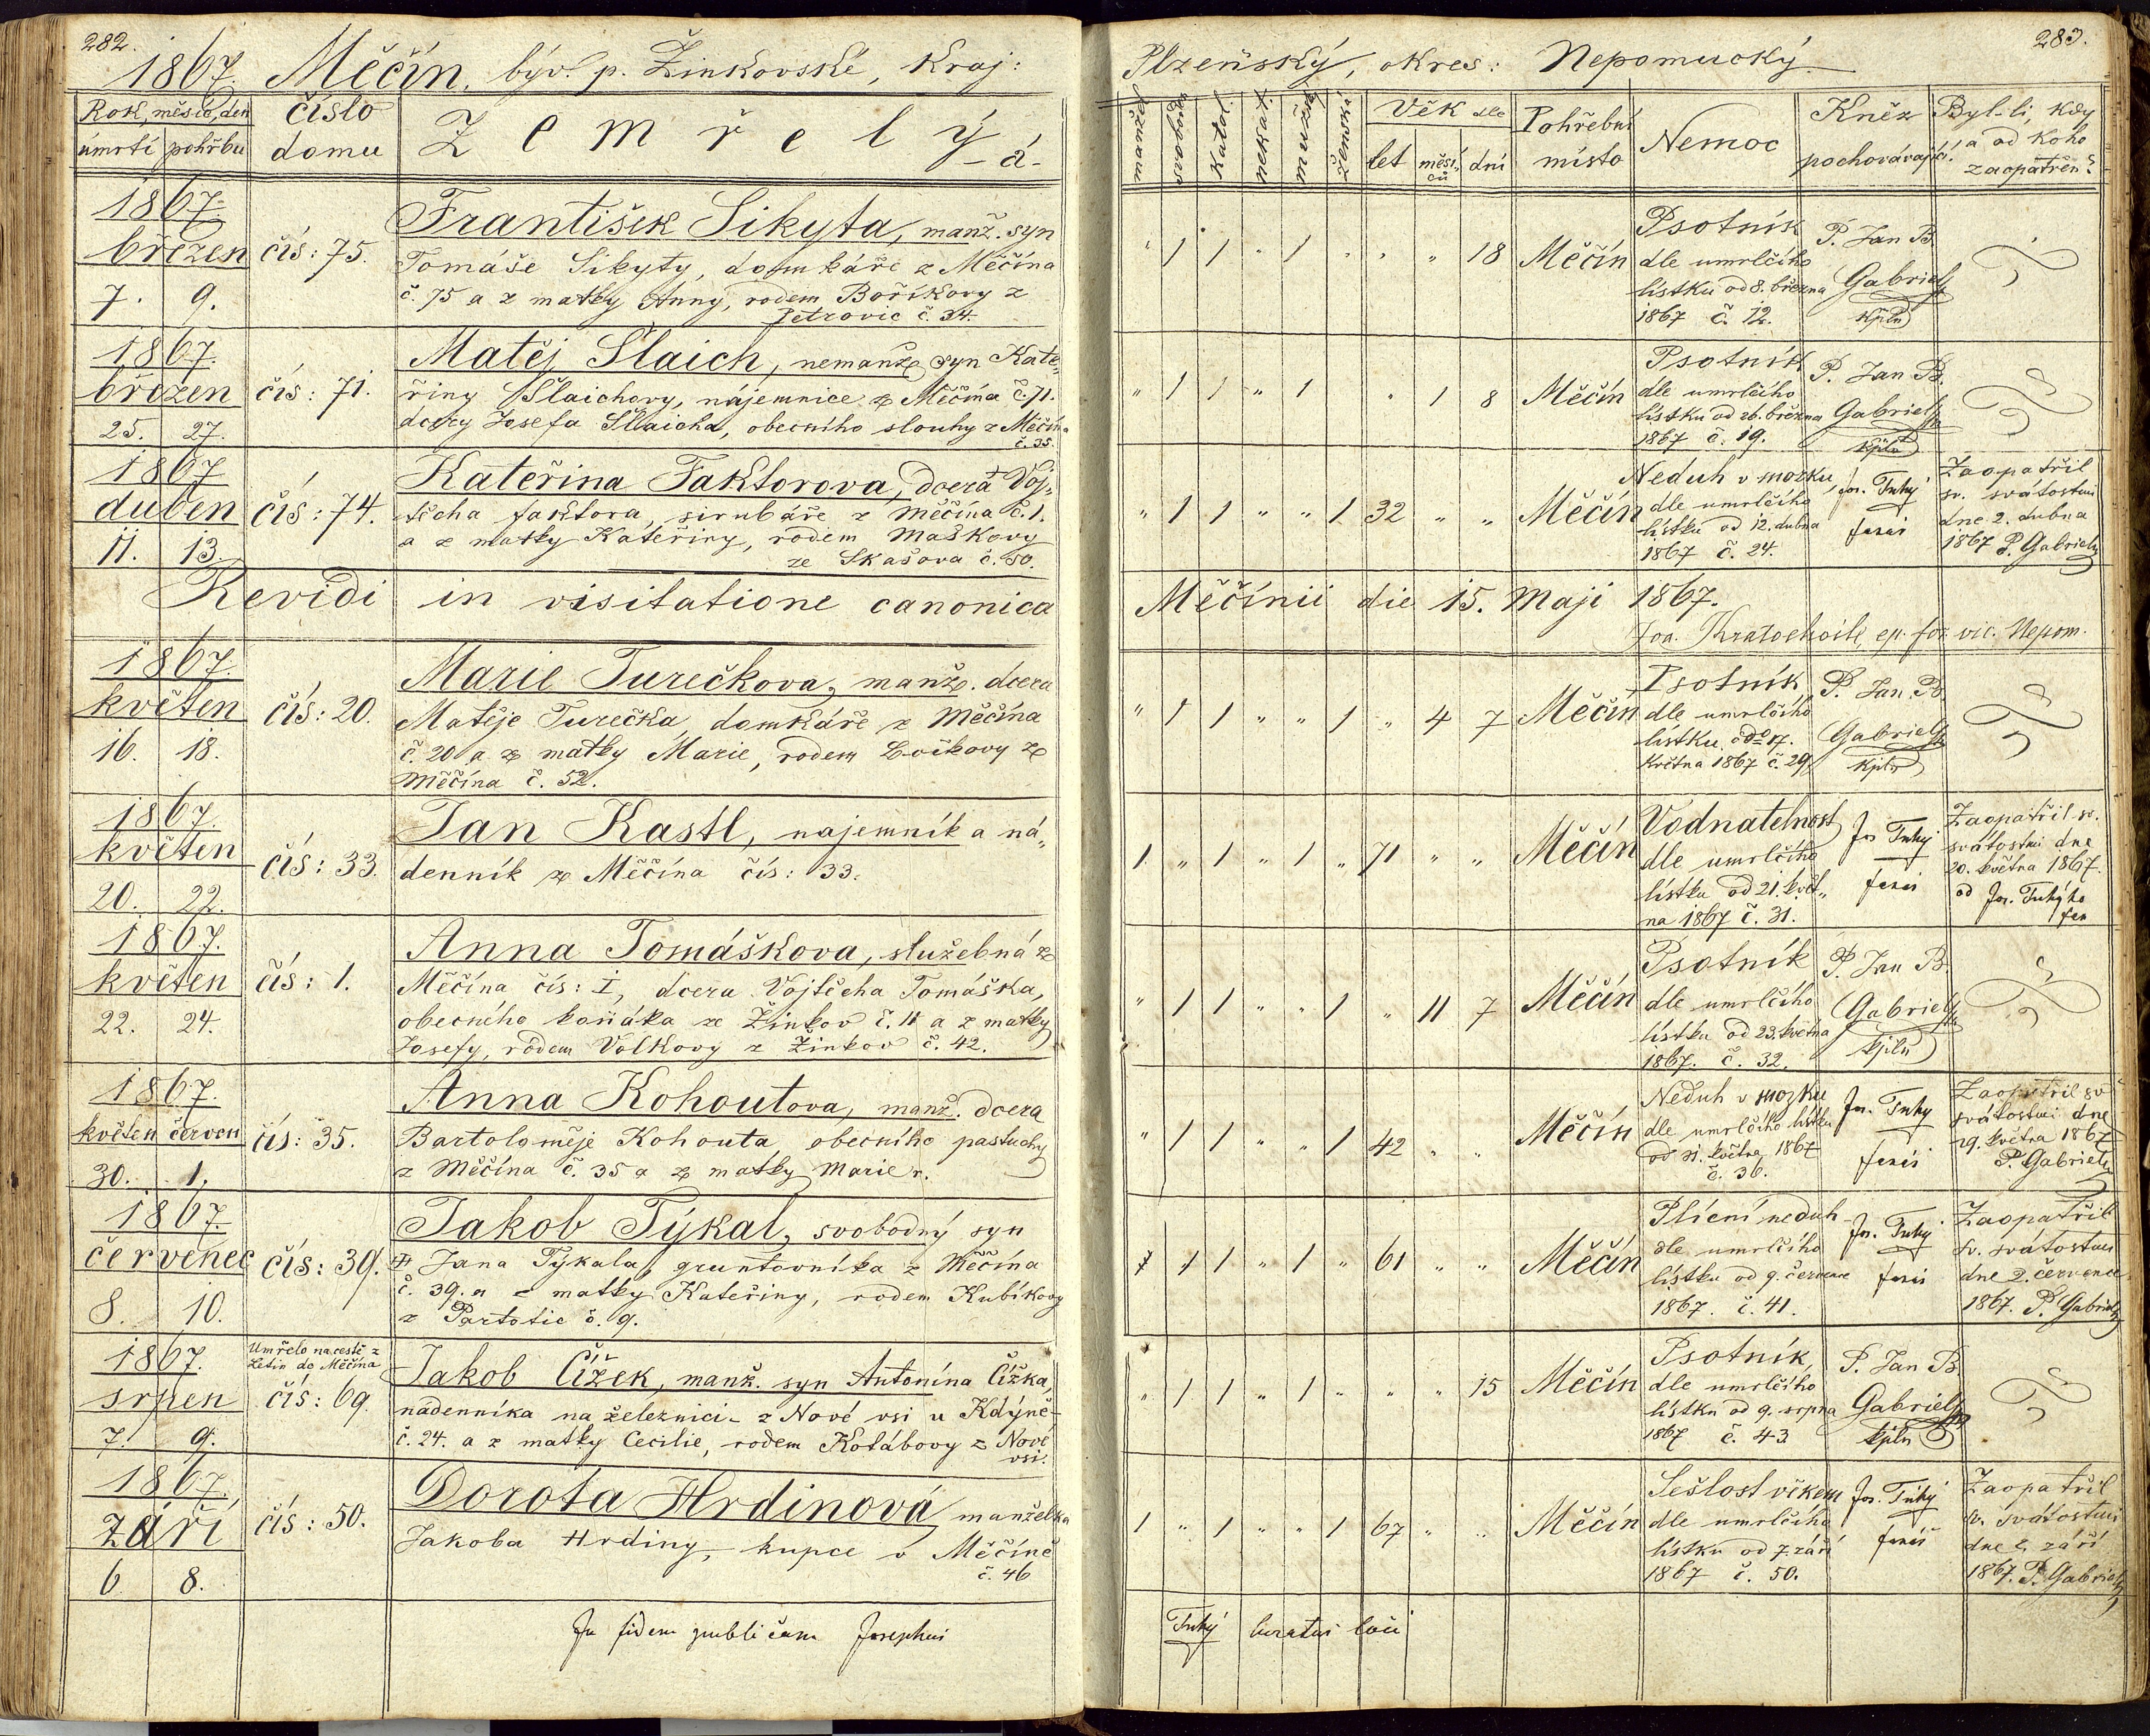 282.
1867. Měčín, býv. p. Žinkovské, Kraj:
Rok, měsíc, den
úmrtí pohřbu
číslo
domu
Zemřelý
-á-
1867.
březen
7. 9.
čís: 75.
František Sikyta, manž. syn
Tomáše Sikyty, domkáře z Měčína
č. 75 a z matky Anny, rodem Boříkovy z
Petrovic č. 34.
1867.
březen
25. 27.
čís: 71.
Matěj Šlaich, nemanž. syn Kate„
řiny Šlaichovy, nájemnice z Měčína č. 71.
dcery Josefa Šlaicha, obecního slouhy z Měčína
č. 35.
1867
duben
11. 13.
čís: 74.
Kateřina Faktorova, dcera Voj„
těcha faktora, z Měčína č. 1.
a z matky Kateřiny, rodem Maškovy
ze Skašova č. 50.
Revidi in visitatione canonica
1867.
květen
16. 18.
čís: 20.
Marie Turečkova, manž. dcera
Matěje Turečka, domkáře z Měčína
č. 20 a z matky Marie, rodem z
Měčína č. 52.
1867.
květen
20. 22.
čís: 33.
Jan Kastl, najemník a ná„
denník z Měčína čís: 33.
1867.
květen
22. 24.
čís: 1.
Anna Tomáškova, služebná z
Měčína čís: I, dcera Vojtěcha Tomáška,
obecného ze Žinkov č. 11 a z matky
Josefy, rodem Volkovy z Žinkov č. 42.
1867.
květen červen
30. 1.
čís: 35.
Anna Kohoutova, manž. dcera
Bartoloměje Kohouta, obecního pastuchy
z Měčína č. 35 a z matky Marie r.
1867.
červenec
8. 10.
čís: 39.
Jakob Týkal, svobodný syn
Jana Týkala, gruntovníka z Měčína
č. 39. a z matky Kateřiny, rodem Kubíkovy
z Partotic č. 9.
1867.
srpen
7. 9.
Umřelo na cestě z
Letin do Měčína
čís: 69.
Jakob Čížek, manž. syn Antonína Čížka,
nádenníka na železnici z Nové vsi u Kdýně
č. 24. a z matky Cecilie, rodem Kotábovy z Nové
vsi.
1867.
září
6 8.
čís: 50.
Dorota Hrdinová manželka
Jakoba Hrdiny, kupce v Měčíně
č. 46
In fidem publicam Josephus
283.
Plzeňský, okres: Nepomucký.
Katol.
mužské
ženské
Věk dle
let měsí„ dní
ců
Pohřební
místo
Nemoc
Kněz
pochovávající
Byl-li, kdy
a od koho
zaopatřen?
" 1 1 " 1 " " " 18 Měčín
Psotník
dle umrlčího
lístku od 8. března
1867 č. 12.
P. Jan B.
Gabriel
kpln
" 1 1 " 1 " 1 8 Měčín
Psotník
dle umrlčího
lístku od 26. března
1867 č. 19.
P. Jan B.
Gabriel
kpln
" 1 1 " " 1 32 " " Měčín
Neduh v mozku,
dle umrlčího
lístku od 12. dubna
1867 č. 24.
Jos. Tuhý
farář
Zaopatřil
sv. svátostmi
dne 2. dubna
1867 P. Gabriel
Měčínii die 15. Maji 1867.
Joa. Kratochvile, ep. for. vic. Nepom.
" 1 1 " " 1 " 4 7 Měčín
Psotník,
dle umrlčího
lístku od 17.
května 1867 č. 29
P. Jan B.
Gabriel
kpln
1. " 1 " 1 " 71 " " Měčín
Vodnatelnost
dle umrlčího
lístku od 21. květ„
na 1867 č. 31.
Jos. Tuhý
farář
Zaopatřil sv.
svátostmi dne
20. května 1867.
od Jos. Tuhýho
far
" 1 1 " " 1 " 11 7 Měčín
Psotník
dle umrlčího
lístku od 23. května
1867. č. 32.
P. Jan B.
Gabriel
kpln
" 1 1 " " 1 42 " " Měčín
Neduh v mozku
dle umrlčího lístku
od 31. května 1867
č. 36.
Jos. Tuhý
farář
Zaopatřil sv
svátostmi dne
29. května 1867
P. Gabriel
1 1 1 " 1 " 61 " " Měčín
Plicní neduh
dle umrlčího
lístku od 9. července
1867. č. 41.
Jos. Tuhý
farář
Zaopatřil
sv. svátostmi
dne 2. července
1867. P. Gabriel
" 1 1 " 1 " " " 15 Měčín
Psotník,
dle umrlčího
lístku od 9. srpna
1867 č. 43
P. Jan B.
Gabriel
kpln
1 " 1 " " 1 67 " " Měčín
Sešlost věkem
dle umrlčího
lístku od 7. září
1867 č. 50.
Jos. Tuhý
farář
Zaopatřil
sv. svátostmi
dne září
1867. P. Gabriel
Tuhý curatus loci